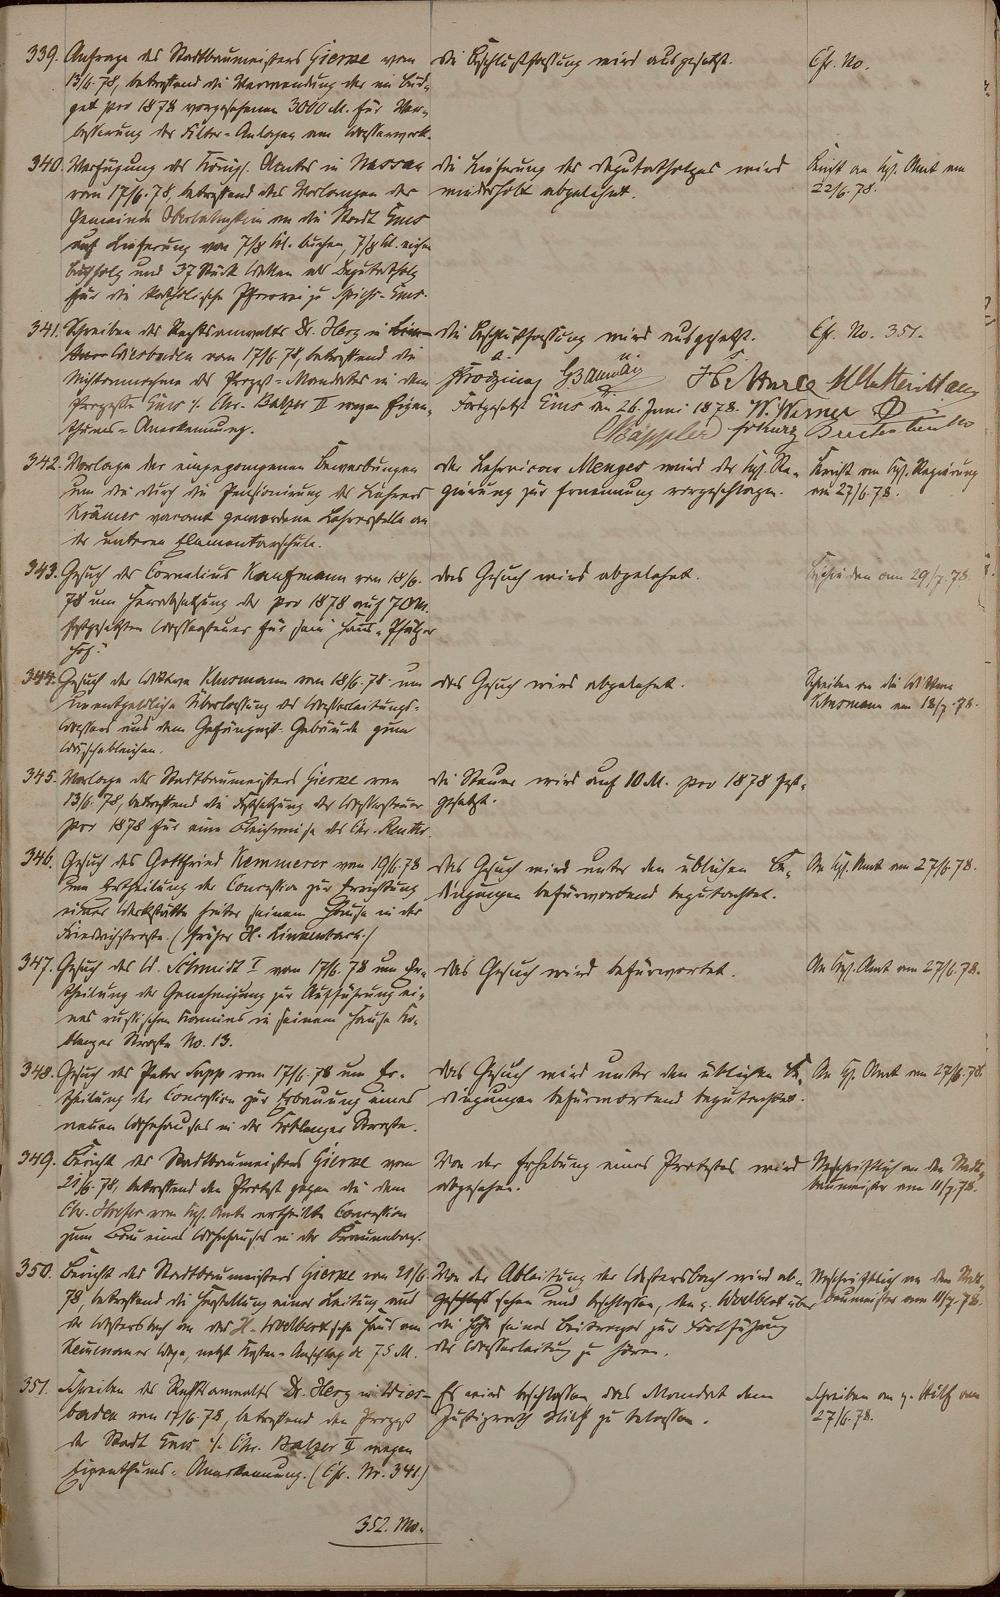 339. Anfrage des Stadtbaumeisters Gierke vom
13/6. 78, betreffend die Verwendung der im Bud-
get pro 1878 vorgesehenen 3000 M. für Ver-
besserung der Filter-Anlagen am Wasserwerk.
die Beschlußfassung wird ausgesetzt.
Cfr. No.
340. Verfügung des Königl. Amtes in Nassau
vom 17/6. 78, betreffend das Verlangen der
Gemeinde Oberlahnstein an die Stadt Ems
auf Lieferung von 7/8 Kl. buchen, 7/8 Kl. eichen
Buchholz und 37 Stück Wellen als Deputatholz
für die katholische Pfarrei zu Ems.
die Lieferung des Deputatholzes wird
wiederholt abgelehnt.
Bericht an Kgl. Amt am
22/6. 78.
341. Schreiben des Rechtsanwalts Dr. Herz in
Wiesbaden vom 17/6. 78, betreffend die
Nichtannahme des Prozeß-Mandates in dem
Prozesse Ems ./. Chr. Balzer II wegen Eigen-
thums-Anerkennung.
die Beschlußfassung wird ausgesetzt.
Cfr. No. 351.
a. u. s.
Fortgesetzt Ems den 26. Juni 1878. W. Werner
342. Vorlage der eingegangenen Bewerbungen
um die durch die Pensionirung des Lehrers
Krämer vacant gewordene Lehrerstelle an
der unteren Elementarschule.
der Lehrvicar Menges wird der Kgl. Re-
gierung zur Ernennung vorgeschlagen.
Bericht an Kgl. Regierung
am 27/6. 78.
343. Gesuch des Cornelius Kaufmann vom 18/6.
78 um Herabsetzung der pro 1878 auf 70 M.
festgesetzten Wassersteuer für sein Haus "Pfälzer
Hof."
das Gesuch wird abgelehnt.
Beschieden am 29/7. 78.
344. Gesuch der Wittwe vom 18/6. 78 um
unentgeldliche Überlassung des Wasserleitungs-
Wassers aus dem Gefängniß-Gebäude zum
Wäschebleichen.
das Gesuch wird abgelehnt.
Schreiben an die Wittwe
am 18/7. 78.
345. Vorlage des Stadtbaumeisters Gierke vom
13/6. 78, betreffend die Festsetzung der Wassersteuer
pro 1878 für eine Bleichwiese des Chr.
die Steuer wird auf 10 M. pro 1878 fest-
gesetzt.
346. Gesuch des Gottfried Kemmerer vom 19/6. 78
um Ertheilung der Concession zur Errichtung
einer Werkstätte hinter seinem Hause in der
Friedrichstraße (früher H. Linkenbach.)
das Gesuch wird unter den üblichen Be-
dingungen befürwortend begutachtet.
An Kgl. Amt am 27/6. 78.
347. Gesuch des W. Schmidt I vom 17/6. 78 um Er-
theilung der Genehmigung zur Aufführung ei-
nes russischen Kamines in seinem Hause Ko-
blenzer Straße No. 13.
das Gesuch wird befürwortet.
An Kgl. Amt am 27/6. 78.
348. Gesuch des Peter vom 17/6. 78 um Er-
theilung der Concession zur Erbauung eines
neuen Wohnhauses in der Koblenzer Straße.
das Gesuch wird unter den üblichen Be-
dingungen befürwortend begutachtet.
An Kgl. Amt am 27/6. 78.
349. Bericht des Stadtbaumeisters Gierke vom
21/6. 78, betreffend den Protest gegen die dem
Chr. vom Kgl. Amte ertheilte Concession
zum Bau eines Wohnhauses in der
Von der Erhebung eines Protestes wird
abgesehen.
Abschriftlich an den Stadt-
baumeister am 11/7. 78.
350. Bericht des Stadtbaumeisters Gierke vom 21/6.
78, betreffend die Herstellung einer Leitung aus
der Westersbach an das H. Haus am
Wege, nebst Kosten-Anschlag de 75 M.
Von der Ableitung der Westersbach wird ab-
gesehen und beschlossen, den über
die Höhe seines Beitrages zur Fortführung
der Wasserleitung zu hören.
Abschriftlich an den Stadt-
baumeister am 11/7. 78.
351. Schreiben des Rechtsanwalts Dr. Herz in Wies-
baden vom 17/6. 78, betreffend den Prozeß
der Stadt Ems ./. Chr. Balzer II wegen
Eigenthums-Anerkennung. (Cfr. Nr. 341.)
Es wird beschlossen das Mandat dem
Justizrath zu belassen.
Schreiben an
27/6. 78.
352. Mo-